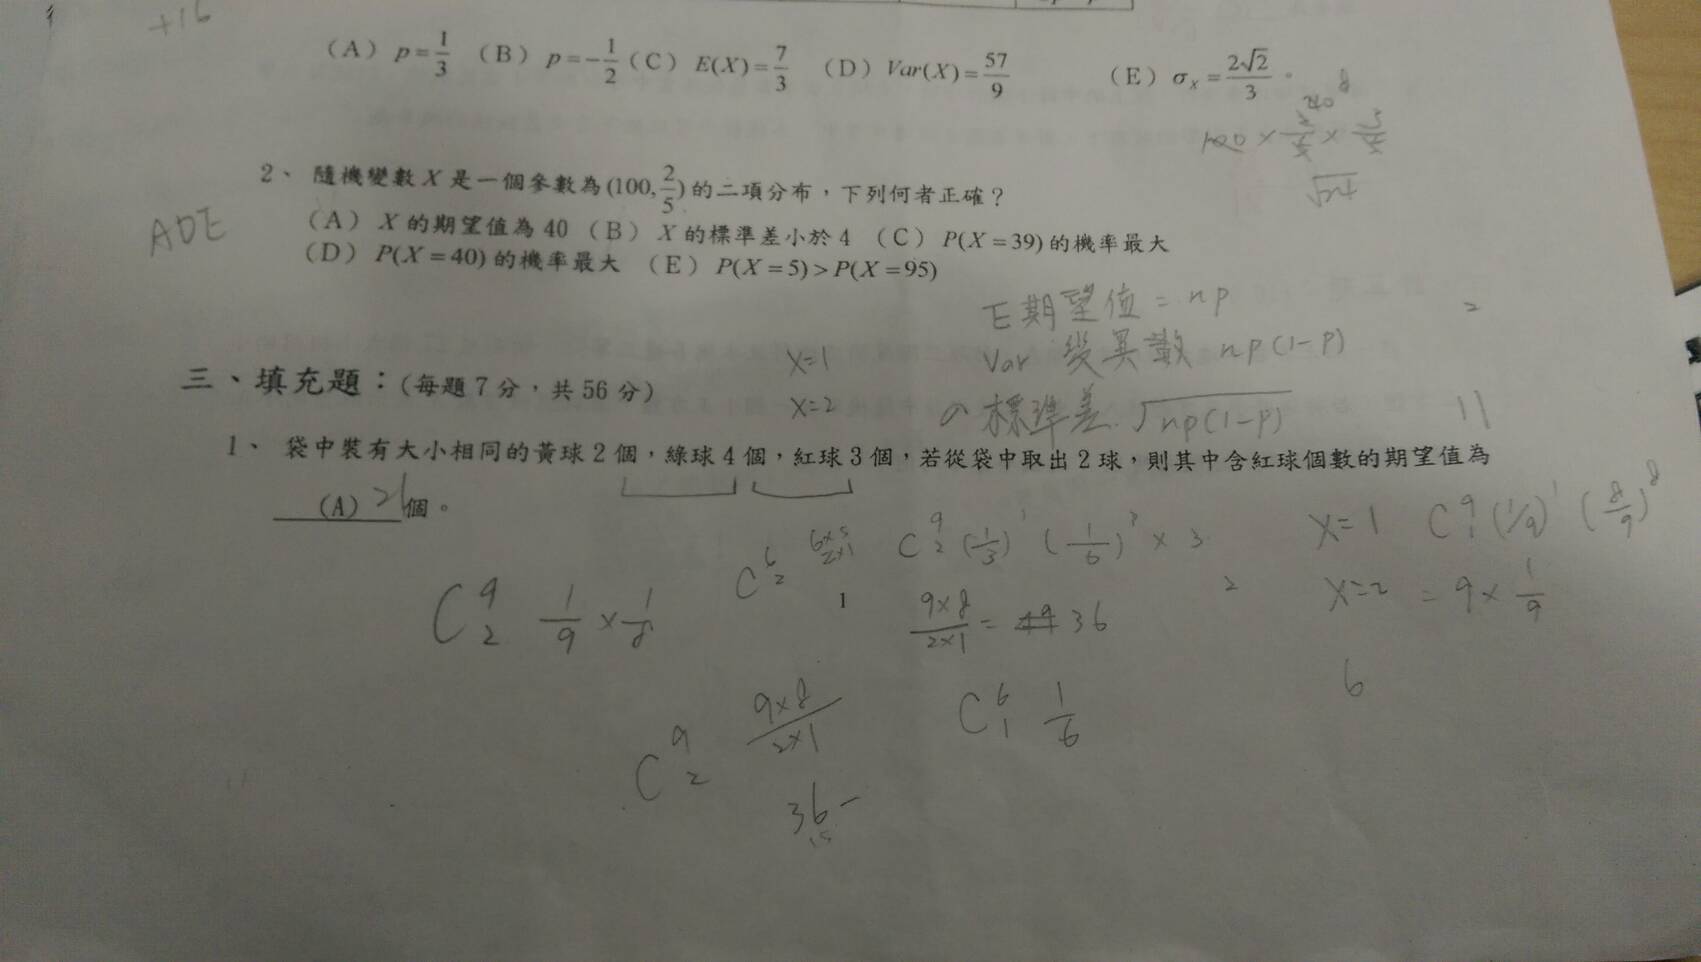 +16
(A) p=1/3 (B) p=-1/2 (C) E(X)=7/3 (D) Var(X)=57/9 (E) σx=2√2/3。
100 × 2/5 × 3/5
√24
2、 隨機變數 X 是一個參數為(100,2/5)的二項分布,下列何者正確?
ADE
(A) X 的期望值為 40 (B) X 的標準差小於 4 (C) P(X=39)的機率最大
(D) P(X=40)的機率最大 (E) P(X=5)>P(X=95)
E期望值=np
X=1 Var 變異數 np(1-p)
三、填充題:(每題 7 分,共 56 分)
X=2 σ 標準差 √np(1-p)
1、 袋中裝有大小相同的黃球 2 個,綠球 4 個,紅球 3 個,若從袋中取出 2 球,則其中含紅球個數的期望值為
(A) 個。
C 6 2 6×5/2×1 C 9 2 (1/3)¹ (1/6) × 3 X=1 C 9 1 (1/9)¹ (8/9)⁸
C 9 2 1/9 × 1/8 1 9×8/2×1 = 36 2 X=2 = 9 × 1/9
C 9 2 9×8/2×1 C 6 1 1/6 6
36 -
15